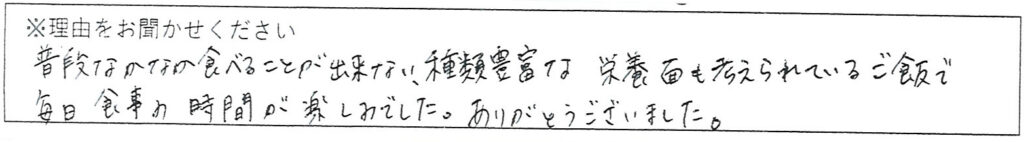 ※理由をお聞かせください
普段なかなか食べることが出来ない、種類豊富な 栄養面も考えられているご飯で
毎日食事の時間が楽しみでした。ありがとうございました。